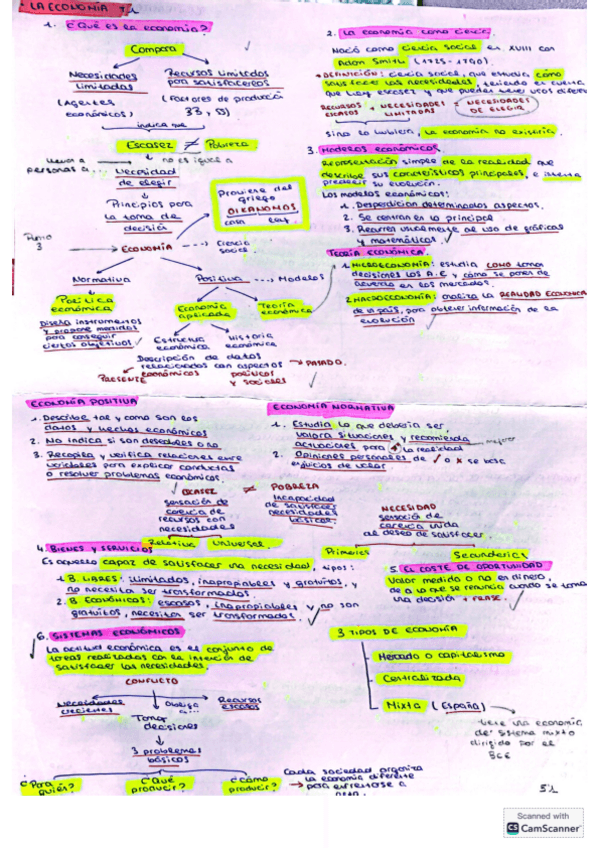 LA ECONOMÍA T.1
1. ¿Qué es la economía?
Compara
Necesidades Ilimitadas
Recursos limitados para satisfacerlos
(Agentes económicos)
(Factores de producción
indica que
Escasez ≠ Pobreza
lleva a personas a...
no es igual a
Necesidad de elegir
Principios para la toma de decisión
Proviene del griego
OIKONOMOS
casa
ley
Punto 3
ECONOMÍA
Ciencia social
Normativa
Positiva
Modelos
Política económica
Economía aplicada
Teoría económica
Diseña instrumentos y propone medidas para conseguir ciertos objetivos
Estructura económica
Historia económica
Descripción de datos relacionados con aspectos económicos
políticos y sociales
PRESENTE
PASADO.
2. La economía como ciencia
Nació como ciencia social en XVIII con
Adam Smith
DEFINICIÓN: ciencia social, que estudia cómo
satisfacer las necesidades, teniendo en cuenta
que hay escasez y que pueden tener usos diferen
RECURSOS ESCASOS + NECESIDADES ILIMITADAS = NECESIDADES DE ELEGIR
Sino la hubiera, la economía no existiría.
3. Modelos económicos
Representación simple de la realidad que
describe sus características principales, e intenta
predecir su evolución.
Los modelos económicos:
1. Desperdician determinados aspectos.
2. Se centran en lo principal
3. Recurren usualmente al uso de gráficas
y matemáticas.
TEORÍA ECONÓMICA
1. MICROECONOMÍA: estudia COMO toman
decisiones los A.E y cómo se ponen de
acuerdo en los mercados.
2. MACROECONOMÍA: analiza la REALIDAD ECONOMICA
de un país, para obtener información de la
evolución
ECONOMÍA POSITIVA
1. Describe tal y como son los
datos y hechos económicos
2. No indica si son deseables o no
3. Recopila y verifica relaciones entre
variables para explicar conductas
o resolver problemas económicos.
ECONOMÍA NORMATIVA
1. Estudia lo que debería ser,
valora situaciones y recomienda
actuaciones para la realidad
mejorar
2. Opiniones personales de
juicios de valor
ESCASEZ ≠ POBREZA
sensación de carencia de recursos con necesidades
Incapacidad de satisfacer necesidades básicas.
NECESIDAD
sensación de carencia unida al deseo de satisfacer
Relativa
Universal
Primarias
Secundarias
4. BIENES Y SERVICIOS
Es aquello capaz de satisfacer una necesidad, tipos:
1. B. LIBRES: Ilimitados, inapropiables y gratuitos, y
no necesita ser transformados.
2. B. ECONÓMICOS: escasos, inapropiables y no son
gratuitos, necesitan ser transformados.
5. EL COSTE DE OPORTUNIDAD
Valor medido o no en dinero,
de a lo que se renuncia cuando se toma
una decisión + FRASE.
6. SISTEMAS ECONÓMICOS
La actitud económica es el conjunto de
tareas realizadas con la intención de
satisfacer las necesidades.
CONFLICTO
Necesidades crecientes
Obliga a...
Recursos escasos
Tomar decisiones
3 problemas básicos
¿Para quién?
¿Qué producir?
¿Cómo producir?
Cada sociedad organiza
la economía diferente
para enfrentarse a
3 TIPOS DE ECONOMÍA
Mercado o capitalismo
Centralizada
Mixta (España)
tiene una economía
de sistema mixto
dirigido por el
BCE
Scanned with
CS CamScanner